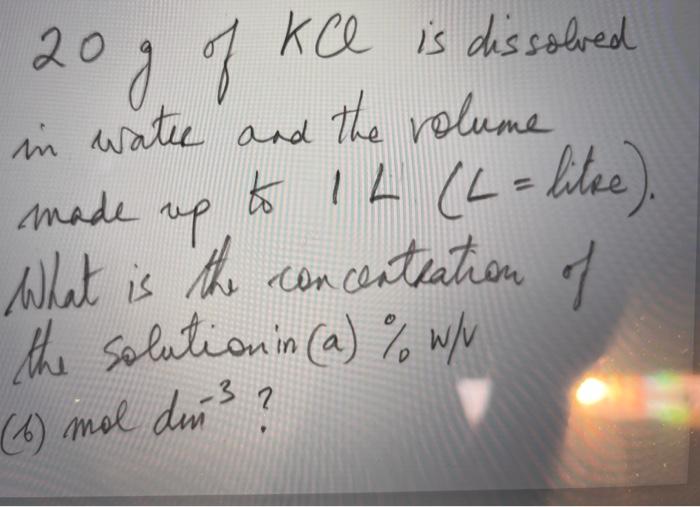 20 g of KCl is dissolved
in water and the volume
made up to 1 L (L = litre).
What is the concentration of
the solution in (a) % w/v
(b) mol dm⁻³ ?